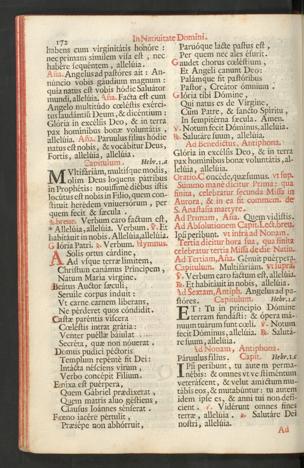 172
In Natiuitate Domini.
litabens cum virginitátis honóre :
nec primam símilem visa est , nec
habére sequéntem , allelúia.
Aña. Angelus ad pastóres ait : An-
núncio vobis gáudium magnum :
quia natus est vobis hódie Saluátor
mundi, allelúia. Aña. Facta est cum
Angelo multitúdo cœléstis exérci-
tus laudántiū Deum, & dicéntium :
Glória in excélsis Deo, & in terra
pax homínibus bonæ voluntátis ,
allelúia. Aña. Páruulus fílius hódie
natus est nobis, & vocábitur Deus,
Fortis, allelúia, allelúia.
Capitulum. Hebr. 1.a
MUltifáriam, multísque modis,
olim Deus loquens pátribus
in Prophétis: nouíssimè diébus istis
locútus est nobis in Fílio, quem con-
stítuit herédem vniuersórum , per
quem fecit & sæcula .
Verbum caro factum est,
* Allelúia, allelúia. Verbum. ℣. Et
habitáuit in nobis. Allelúia, allelúia.
Glória Patri. Verbum. Hymnus.
A Solis ortus cárdine,
Ad vsque terræ límitem,
Christum canámus Príncipem,
Natum María vírgine.
Beátus Auctor sæculi,
Seruíle corpus índuit :
Vt carne carnem líberans,
Ne pérderet quos cóndidit.
Castæ paréntis víscera
Cœléstis intrat grátia:
Venter puéllæ báiulat
Secréta, quæ non nóuerat.
Domus pudíci péctoris
Templum repénte fit Dei:
Intácta nésciens virum ,
Verbo concépit Fílium .
Eníxa est puérpera,
Quem Gábriel prædíxerat ,
Quem matris aluo géstiens ,
Clausus Ioánnes sénserat .
Fœno iacére pértulit ,
Præsépe non abhórruit,
Paruóque lacte pastus est ,
Per quem nec ales ésurit.
Gaudet chorus cœléstium ,
Et Angeli canunt Deo:
Palámque fit pastóribus
Pastor, Creátor ómnium .
Glória tibi Dómine ,
Qui natus es de Vírgine,
Cum Patre, & sancto Spíritu ,
In sempitérna sæcula. Amen.
℣. Notum fecit Dóminus, allelúia.
℟. Salutáre suum, allelúia.
Ad Benedictus. Antiphona.
Glória in excélsis Deo, & in terra
pax homínibus bonæ voluntátis, al-
lelúia, allelúia.
Oratio. Concéde, quæsumus. vt sup.
Ad Primam, Aña. Quem vidístis.
vt infra ad Nonam.
Ad Tertiam, Aña. Génuit puérpera.
Capitulum. Multifáriam. vt supra
℣. Verbum caro factum est, allelúia.
℟. Et habitáuit in nobis, allelúia.
Ad Sextam, Antiph. Angelus ad pa-
stóres. Capitulum. Hebr. 1.
ET: Tu in princípio Dómine
terram fundásti: & ópera má-
nuum tuárum sunt cœli. ℣. Notum
fecit Dóminus, allelúia. ℟. Salutá-
re suum, allelúia.
Ad Nonam, Antiphona.
Páruulus fílius. Capit. Hebr. 1.
IPsi períbunt, tu autem perma-
nébis: & omnes vt vestiméntum
veteráscent, & velut amíctum mu-
tábis eos, & mutabúntur : tu autem
idem ipse es, & anni tui non defí-
cient. ℣. Vidérunt omnes fines
terræ, allelúia. ℟. Salutáre Dei
nostri, allelúia.
Ad